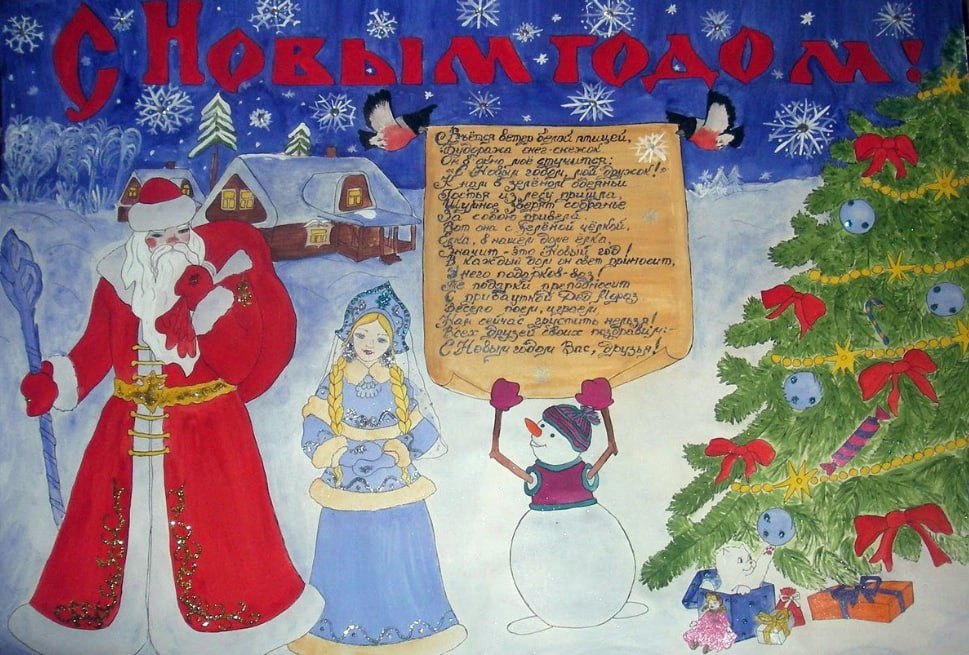 С Новым годом!
Вьётся ветер белой птицей,
Будоража снег-снежок
Он в окно моё стучится:
"С Новым годом, мой дружок!"
К нам в зелёном одеяньи
Гостья из лесу пришла,
Шумное зверят собранье
За собою привела.
Вот она с зелёной чёлкой,
Ёлка, в нашем доме ёлка,
Значит-это Новый год!
В каждый дом он свет приносит,
У него подарков-воз!
Те подарки преподносит
С прибауткой Дед Мороз
Весело поём, играем,
Нам сейчас грустить нельзя!
Всех друзей своих поздравим:-
С Новым годом Вас, друзья!